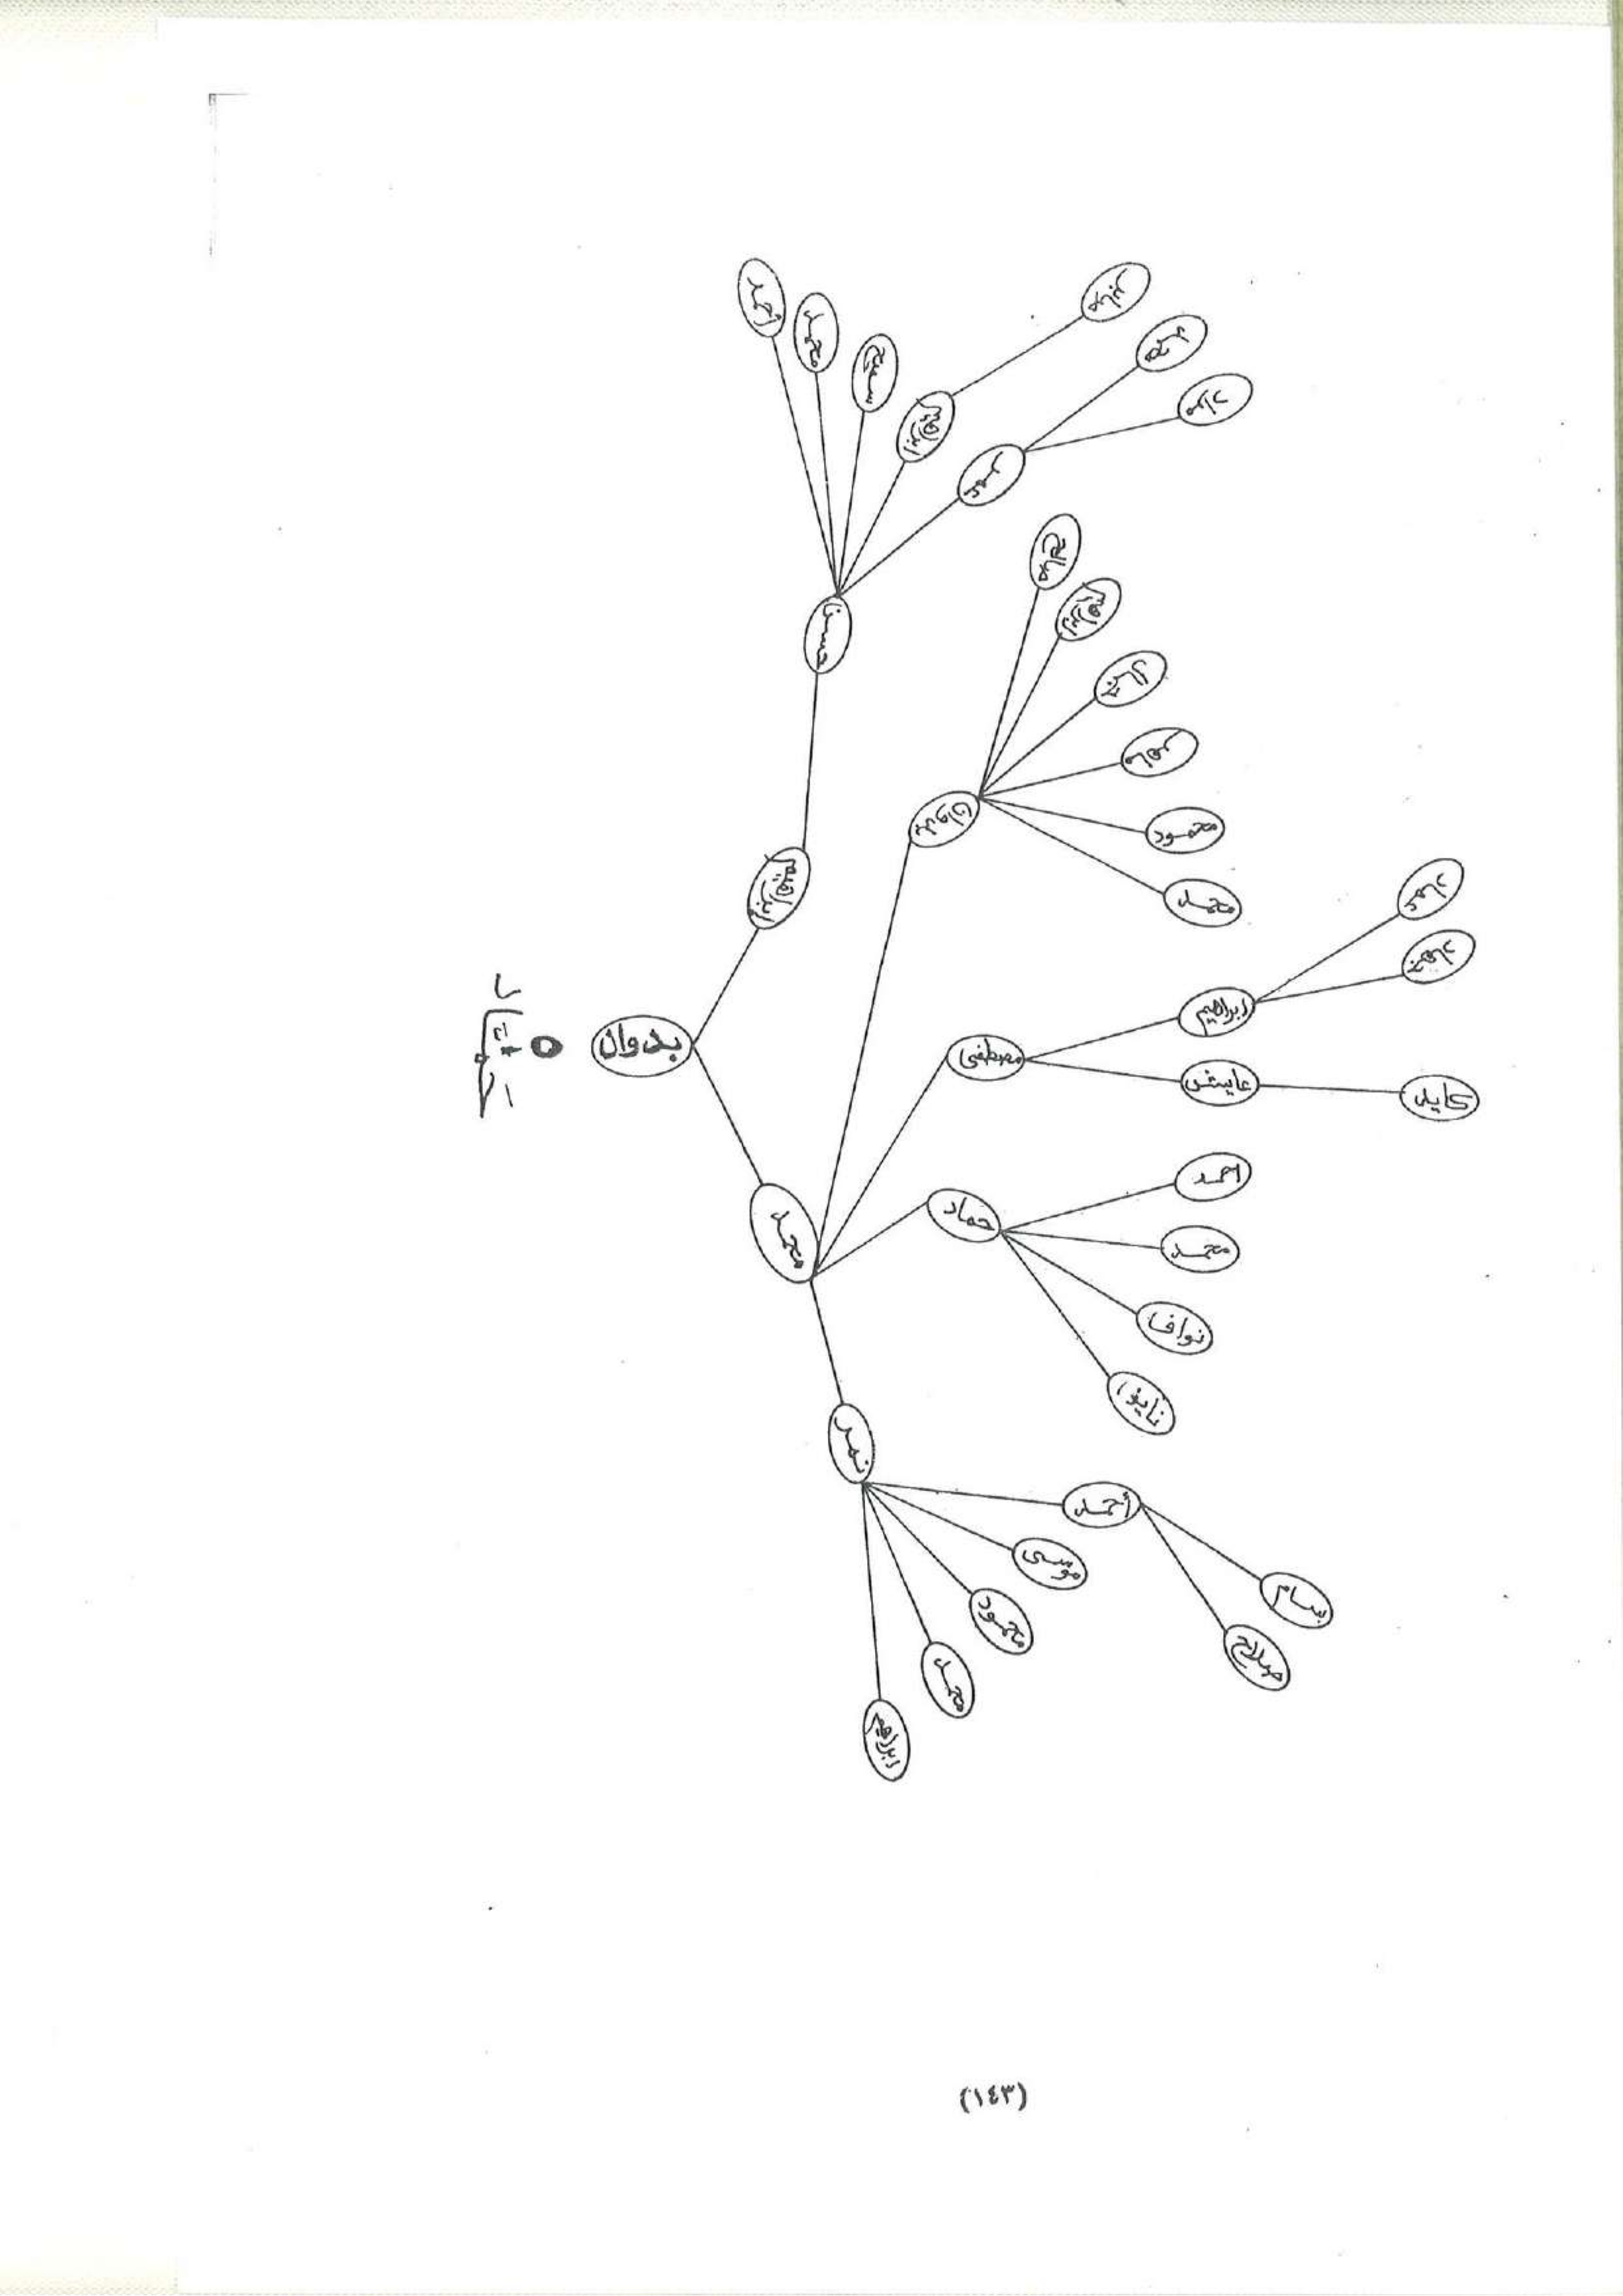 بدوان
ابراهيم
حسن
أحمد
محمد
سميح
ابراهيم
محمد
بدوان
صالح
ابراهيم
محمود
محمد
مصطفى
ابراهيم
عايش
كايد
حماد
احمد
محمد
نواف
نايف
نمر
أحمد
بسام
صلاح
موسى
محمود
محمد
ابراهيم
(١٤٣)